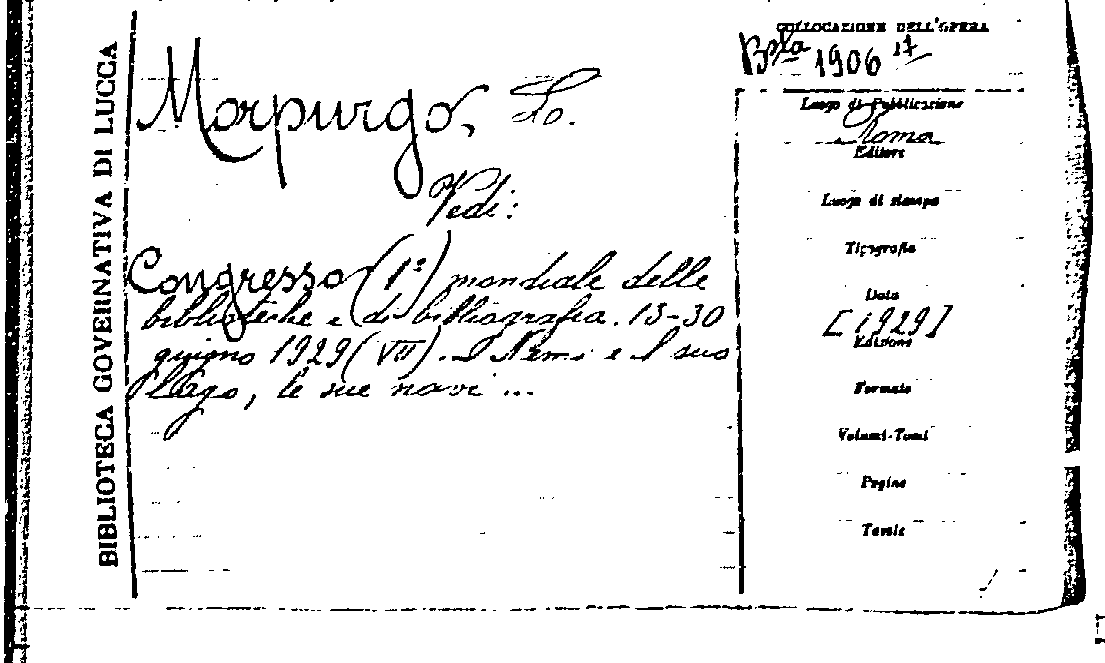 BIBLIOTECA GOVERNATIVA DI LUCCA
Morpurgo, L.
Vedi:
Congresso (1º) mondiale delle
biblioteche e di bibliografia. 15-30
giugno 1929 (VII). Nemi e il suo
Lago, le sue navi ...
COLLOCAZIONE DELL'OPERA
Bsta 1906 17
Luogo di Pubblicazione
Roma
Editore
Luogo di stampa
Tipografia
Data
[1929]
Edizione
Formato
Volumi-Tomi
Pagine
Tavole